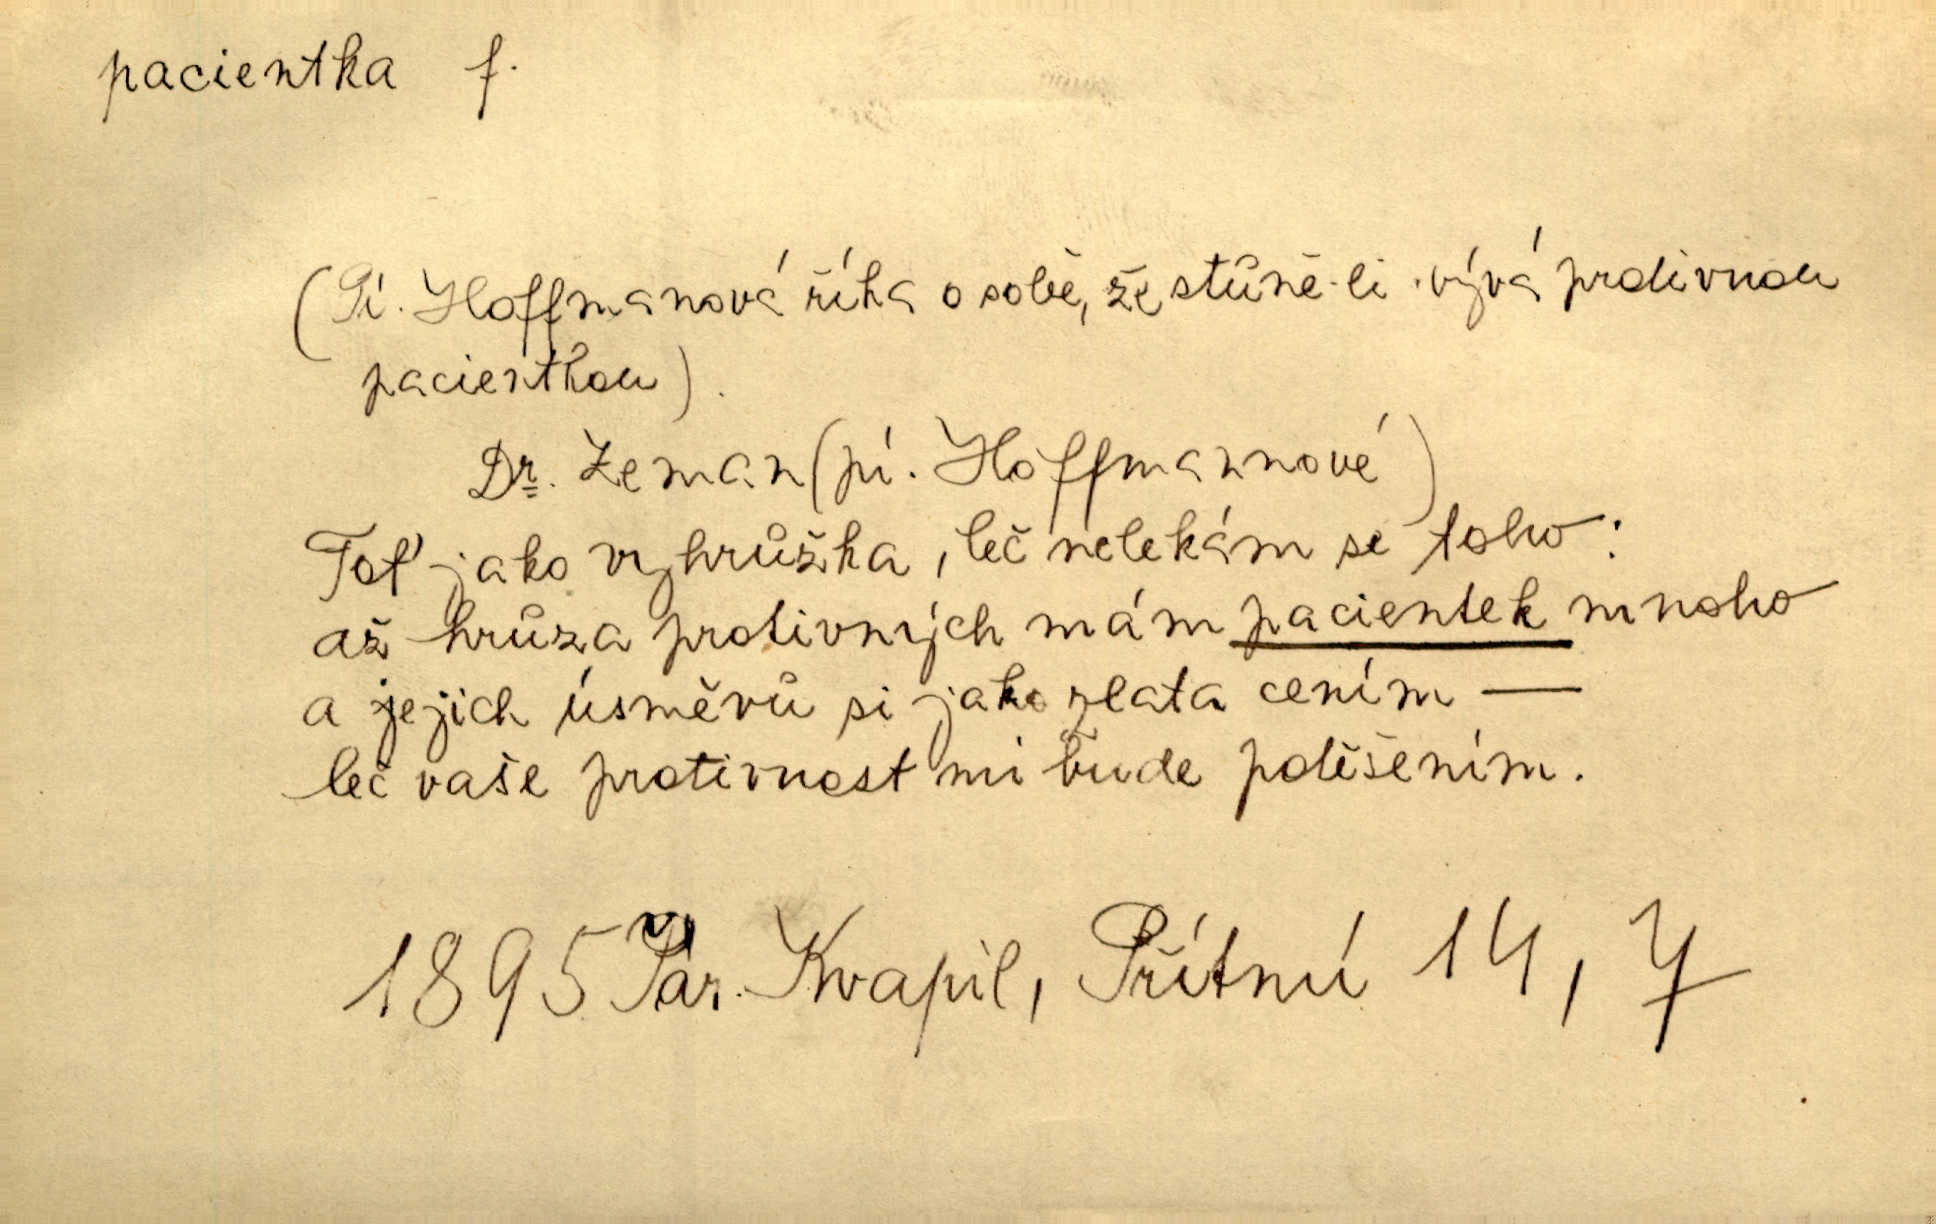 pacientka f.
(Pí. Hoffmanová říká o sobě, že stůně-li .vývá protivnou
pacientkou).
Dr. Zeman (pí. Hoffmannové)
Toť jako vyhrůžka, leč nelekám se toho:
až hrůza protivných mám pacientek mnoho
a jejich úsměvů si jako zlata cením —
leč vaše protivnost mi bude potěšením.
1895 Jar. Kvapil, Přítmí 14, 7